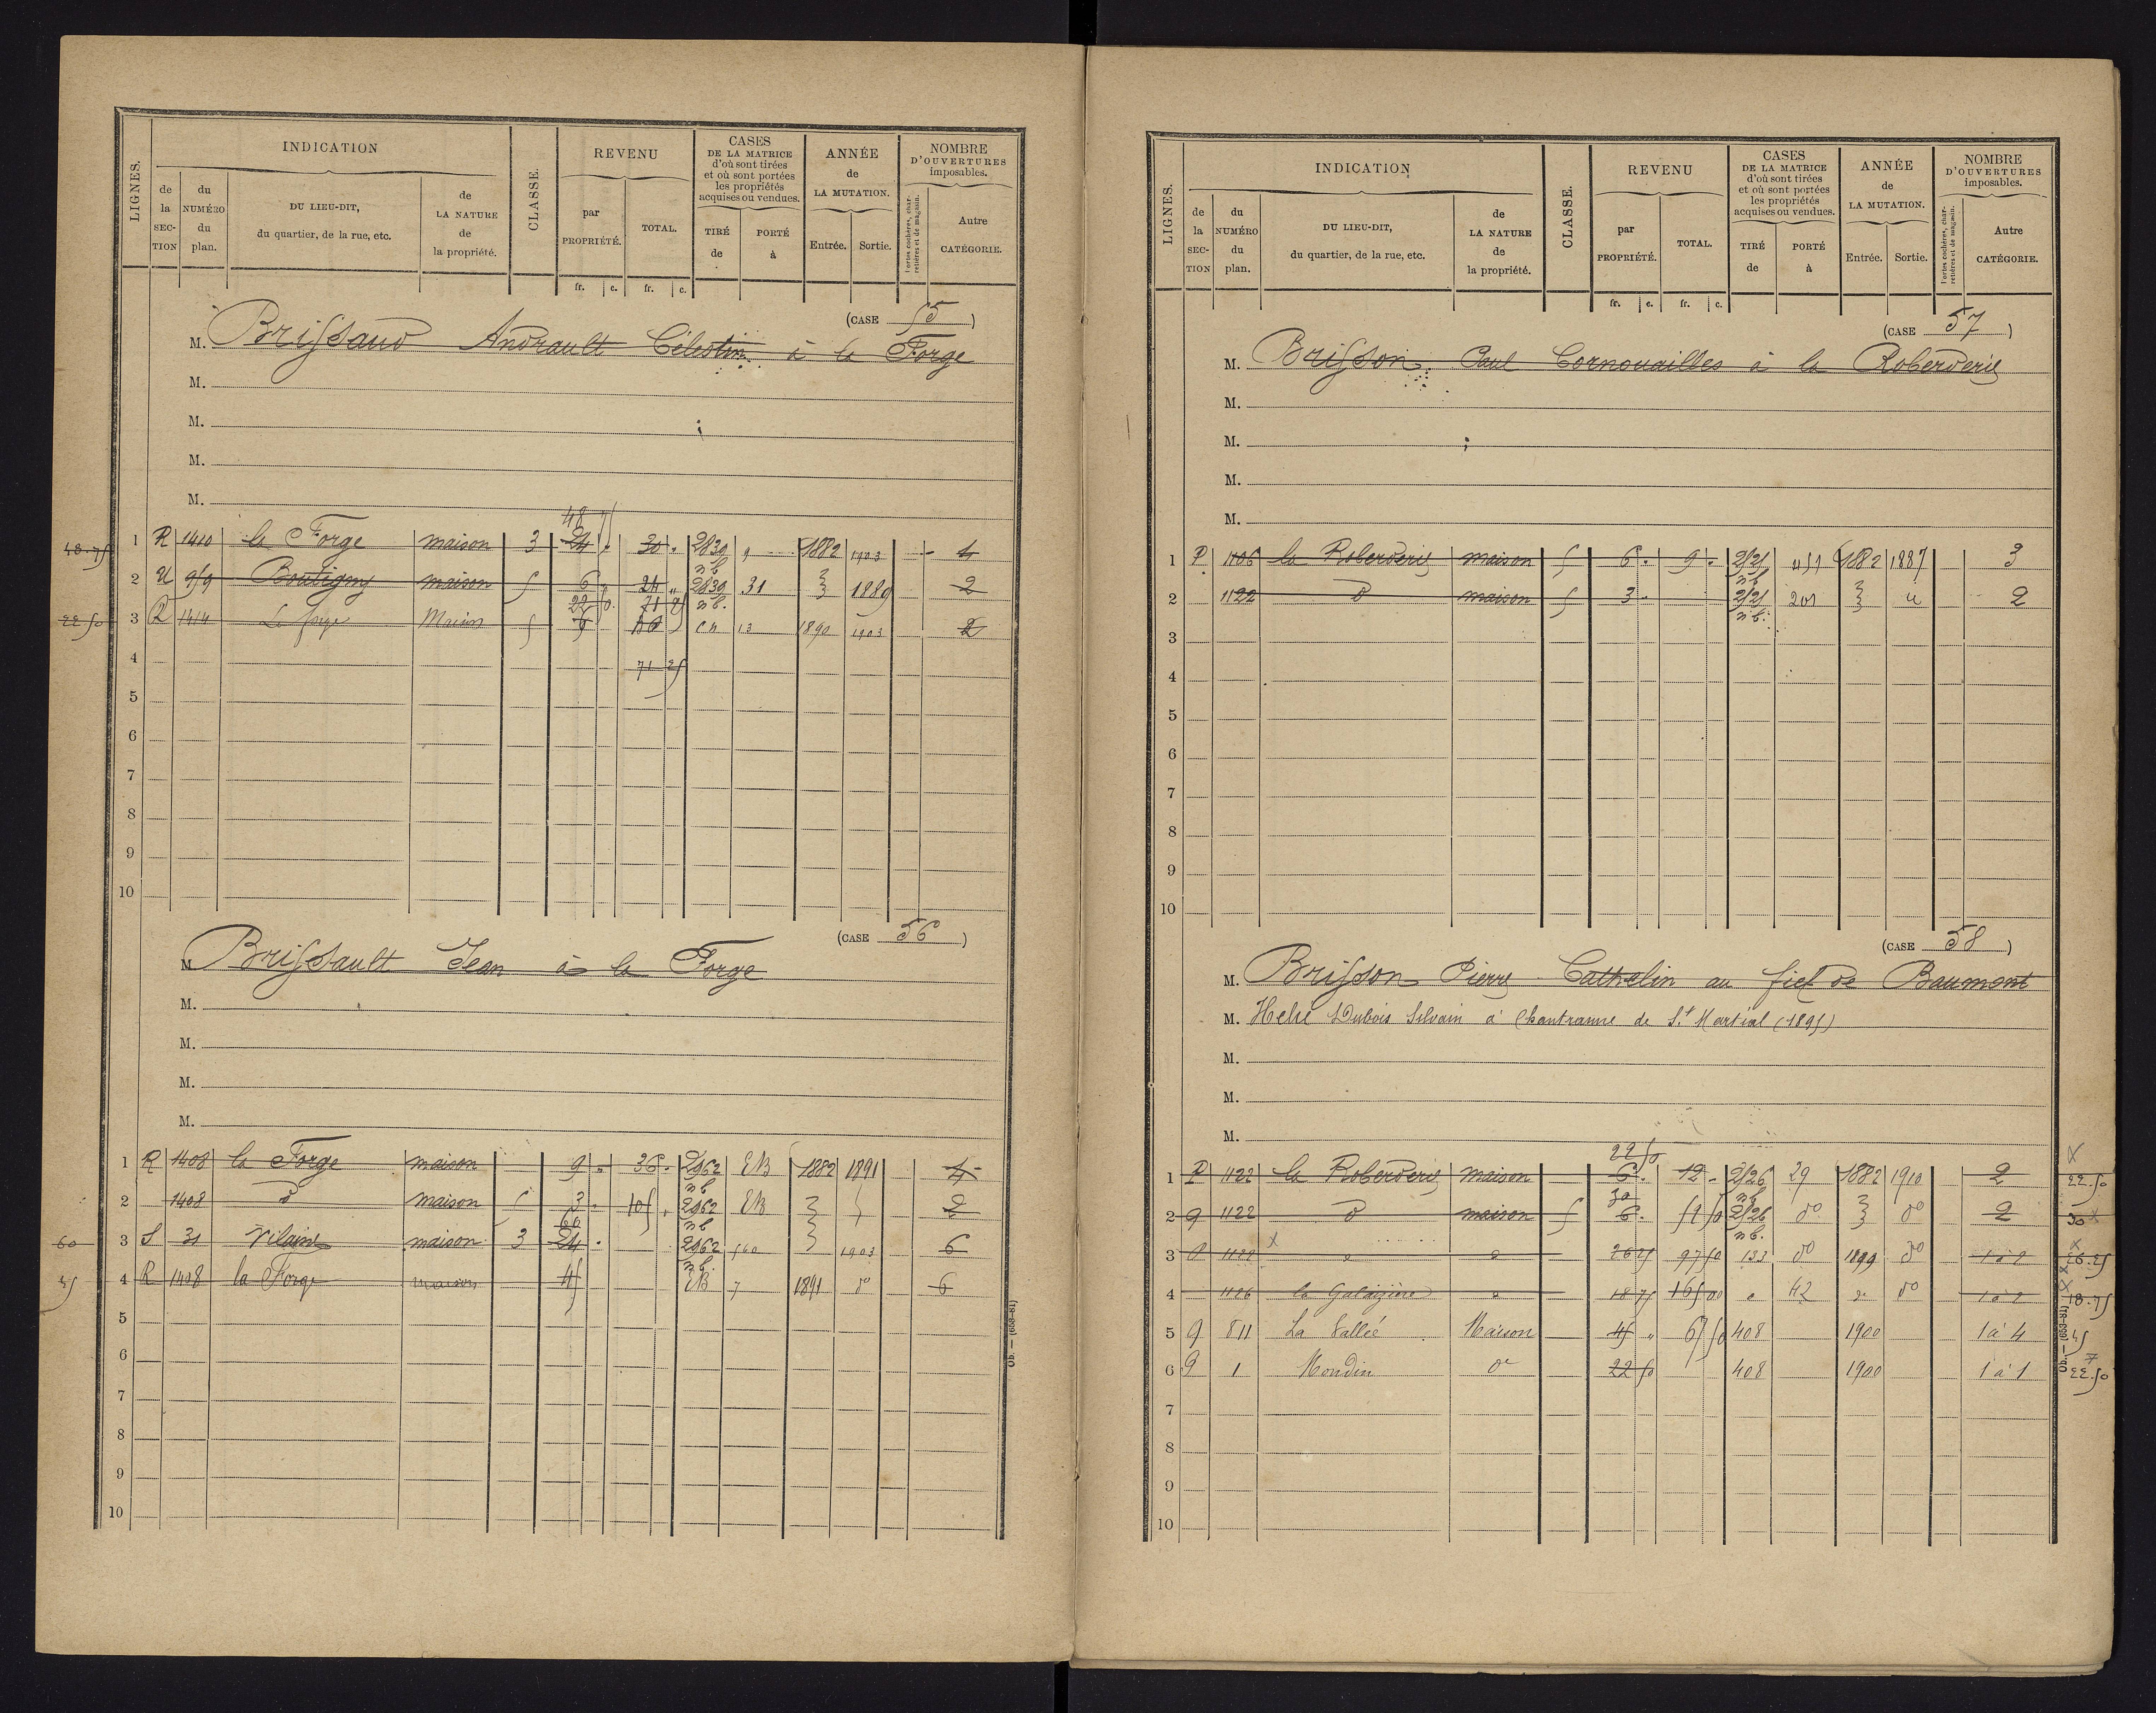 LIGNES. INDICATION CLASSE. REVENU CASES DE LA MATRICE d'où sont tirées et où sont portées les propriétés acquises ou vendues. ANNÉE de LA MUTATION. NOMBRE D'OUVERTURES imposables.
de la SECTION du NUMÉRO du plan. DU LIEU-DIT, du quartier, de la rue, etc. de LA NATURE de la propriété. par PROPRIÉTÉ. TOTAL. TIRÉ de PORTÉ à Entrée. Sortie. Portes cochères, charretières et de magasin. Autre CATÉGORIE.
fr. c. fr. c.
(CASE 55)
M. Brissaud Andrault Célestin à la Forge
M.
M.
M.
M.
48 75
48.75 1 R 1410 la Forge maison 3 24 . 30 . 2839 9 1882 1903 4
nb
2 U 959 Boutigny maison 5 6 24 „ 2839 31 1889 2
22 50 71 25 nb.
22 50 3 R 1414 La forge Maison 5 9 13 1890 1903 2
4 71 25
5
6
7
8
9
10
(CASE 56)
M. Brissault Jean à la Forge
M.
M.
M.
M.
1 R 1408 la Forge maison 9 . 36 . 2962 EB 1882 1891 4
nb
2 1408 d maison 5 3 . 105 . 2962 EB 2
60 nb
60 3 S 31 Vilaine maison 3 24 . 2962 560 1903 6
nb.
45 4 R 1408 la Forge maison 45 EB 7 1891 do 6
5
6
7
8
9
10
Ob. — (653-81)
LIGNES. INDICATION CLASSE. REVENU CASES DE LA MATRICE d'où sont tirées et où sont portées les propriétés acquises ou vendues. ANNÉE de LA MUTATION. NOMBRE D'OUVERTURES imposables.
de la SECTION du NUMÉRO du plan. DU LIEU-DIT, du quartier, de la rue, etc. de LA NATURE de la propriété. par PROPRIÉTÉ. TOTAL. TIRÉ de PORTÉ à Entrée. Sortie. Portes cochères, charretières et de magasin. Autre CATÉGORIE.
fr. c. fr. c.
(CASE 57)
M. Brisson Paul Cornouailles à la Roberderie
M.
M.
M.
M.
1 P 1106 la Roberderie maison 5 6 . 9 . 2125 451 1882 1887 3
nb
2 1122 d maison 5 3 . 2125 201 2
nb.
3
4
5
6
7
8
9
10
(CASE 58)
M. Brisson Pierre Cathelin au fief de Baumont
M. Helie Dubois Silvain à Chantranne de St Martial (1895)
M.
M.
M.
22 50
1 P 1122 la Roberderie maison 6 . 12 . 2126 29 1882 1910 2 22.50
30 nb
2 9 1122 d maison 5 6 . 52 50 2126 do do 2 30
nb.
3 1122 26 25 97 50 133 do 1899 do 1 à 2 26.25
4 1126 la Galaizière 18 75 165 00 42 do 1 à 2 18.75
5 9 811 La Vallée Maison 45 „ 67 50 408 1900 1 à 4 45
6 9 1 Mondin do 22 50 408 1900 1 à 1 22.50
7
8
9
10
Ob. — (653-81)